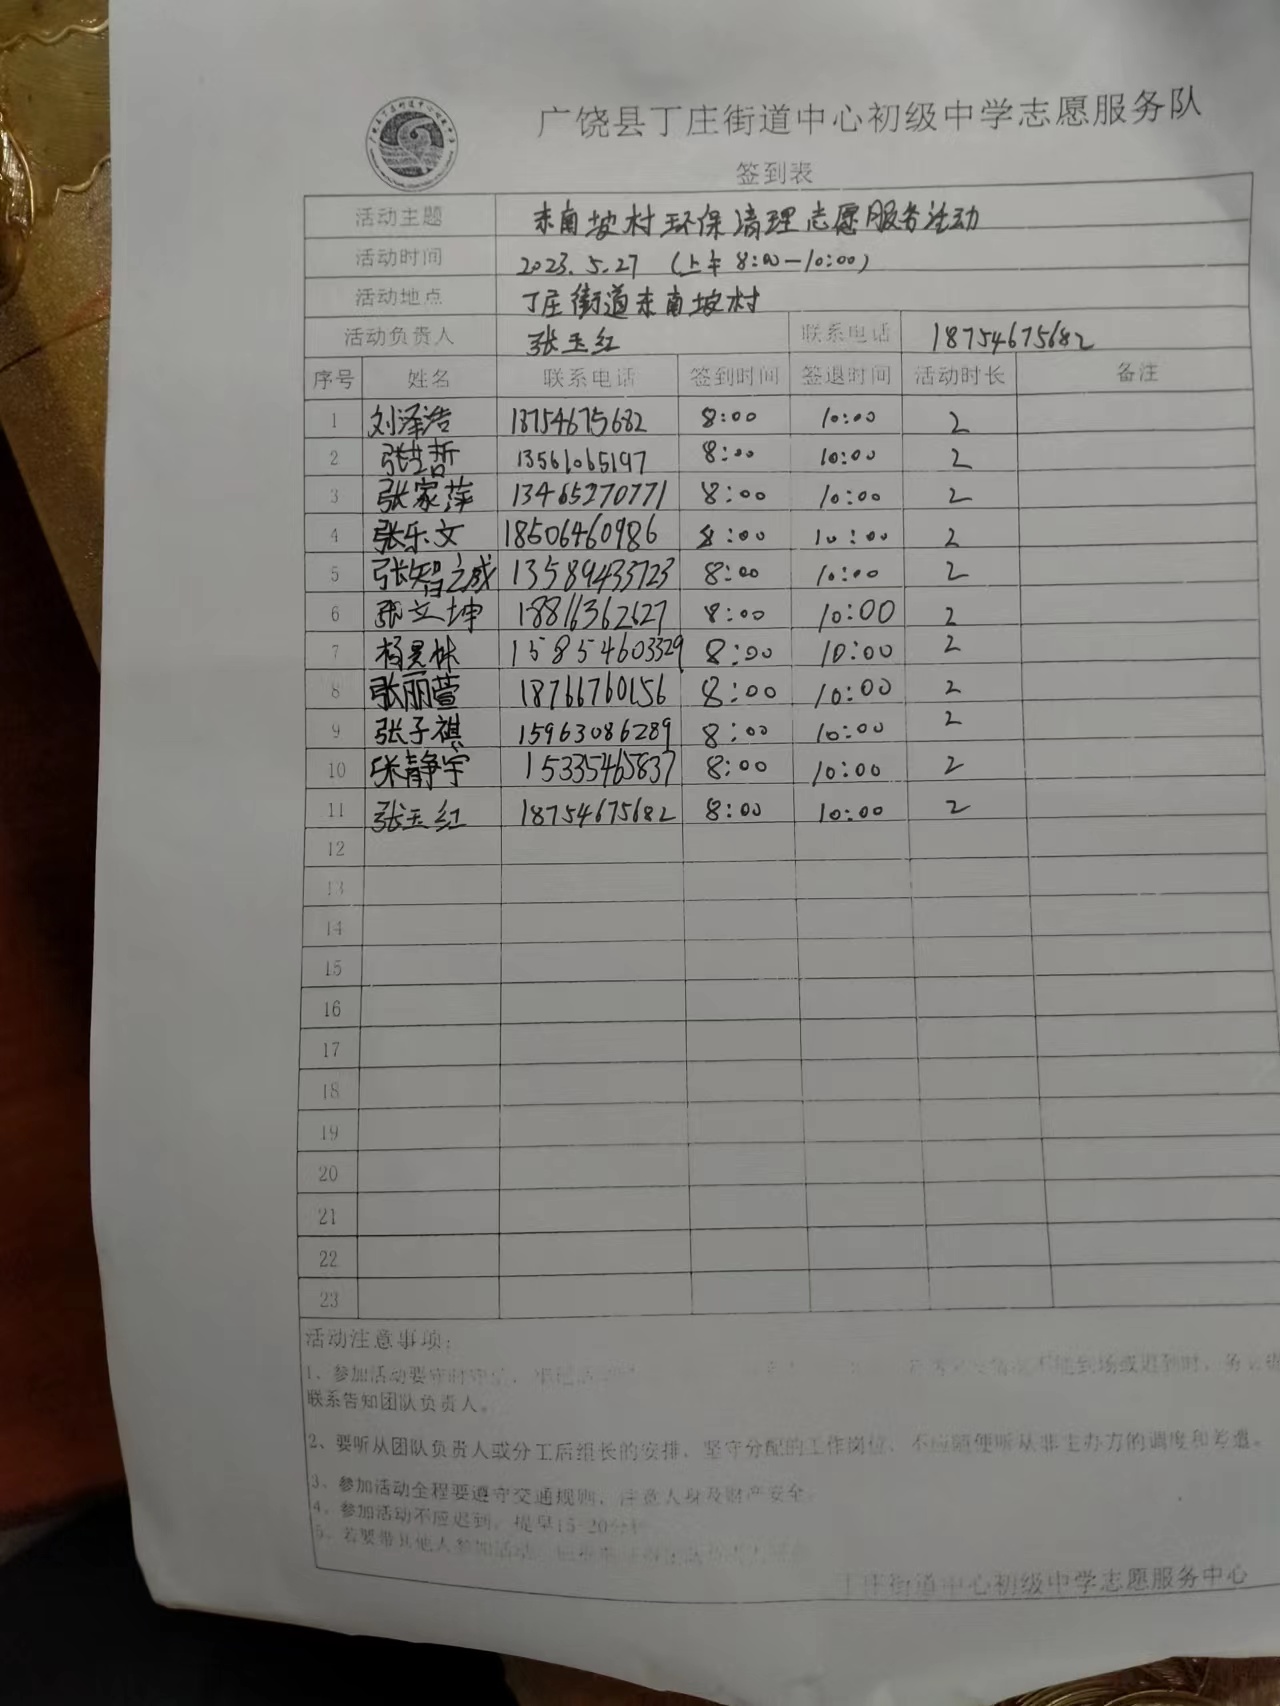 广饶县丁庄街道中心初级中学志愿服务队
签到表
活动主题 东南坡村环保清理志愿服务活动
活动时间 2023.5.27 (上午8:00-10:00)
活动地点 丁庄街道东南坡村
活动负责人 张玉红 联系电话 18754675682
序号 姓名 联系电话 签到时间 签退时间 活动时长 备注
1 刘泽浩 18754675682 8:00 10:00 2
2 13561065197 8:00 10:00 2
3 张家萍 13465270771 8:00 10:00 2
4 张乐文 18506460986 8:00 10:00 2
5 张智之成 13589433723 8:00 10:00 2
6 张文坤 18816362627 8:00 10:00 2
7 杨昊林 158854603329 8:00 10:00 2
8 张丽萱 18766760156 8:00 10:00 2
9 张子祺 15963086289 8:00 10:00 2
10 张静宇 15335465837 8:00 10:00 2
11 张玉红 18754675682 8:00 10:00 2
12
13
14
15
16
17
18
19
20
21
22
23
活动注意事项：
1、参加活动要守时守信，不能到场或迟到时，
联系告知团队负责人。
2、要听从团队负责人或分工后组长的安排，坚守分配的工作岗位，不应随便听从非主办方的调度和差遣。
3、参加活动全程要遵守交通规则，注意人身及财产安全。
4、参加活动不应迟到，提早15-20分钟
5、若要带其他人参加活动，
丁庄街道中心初级中学志愿服务中心